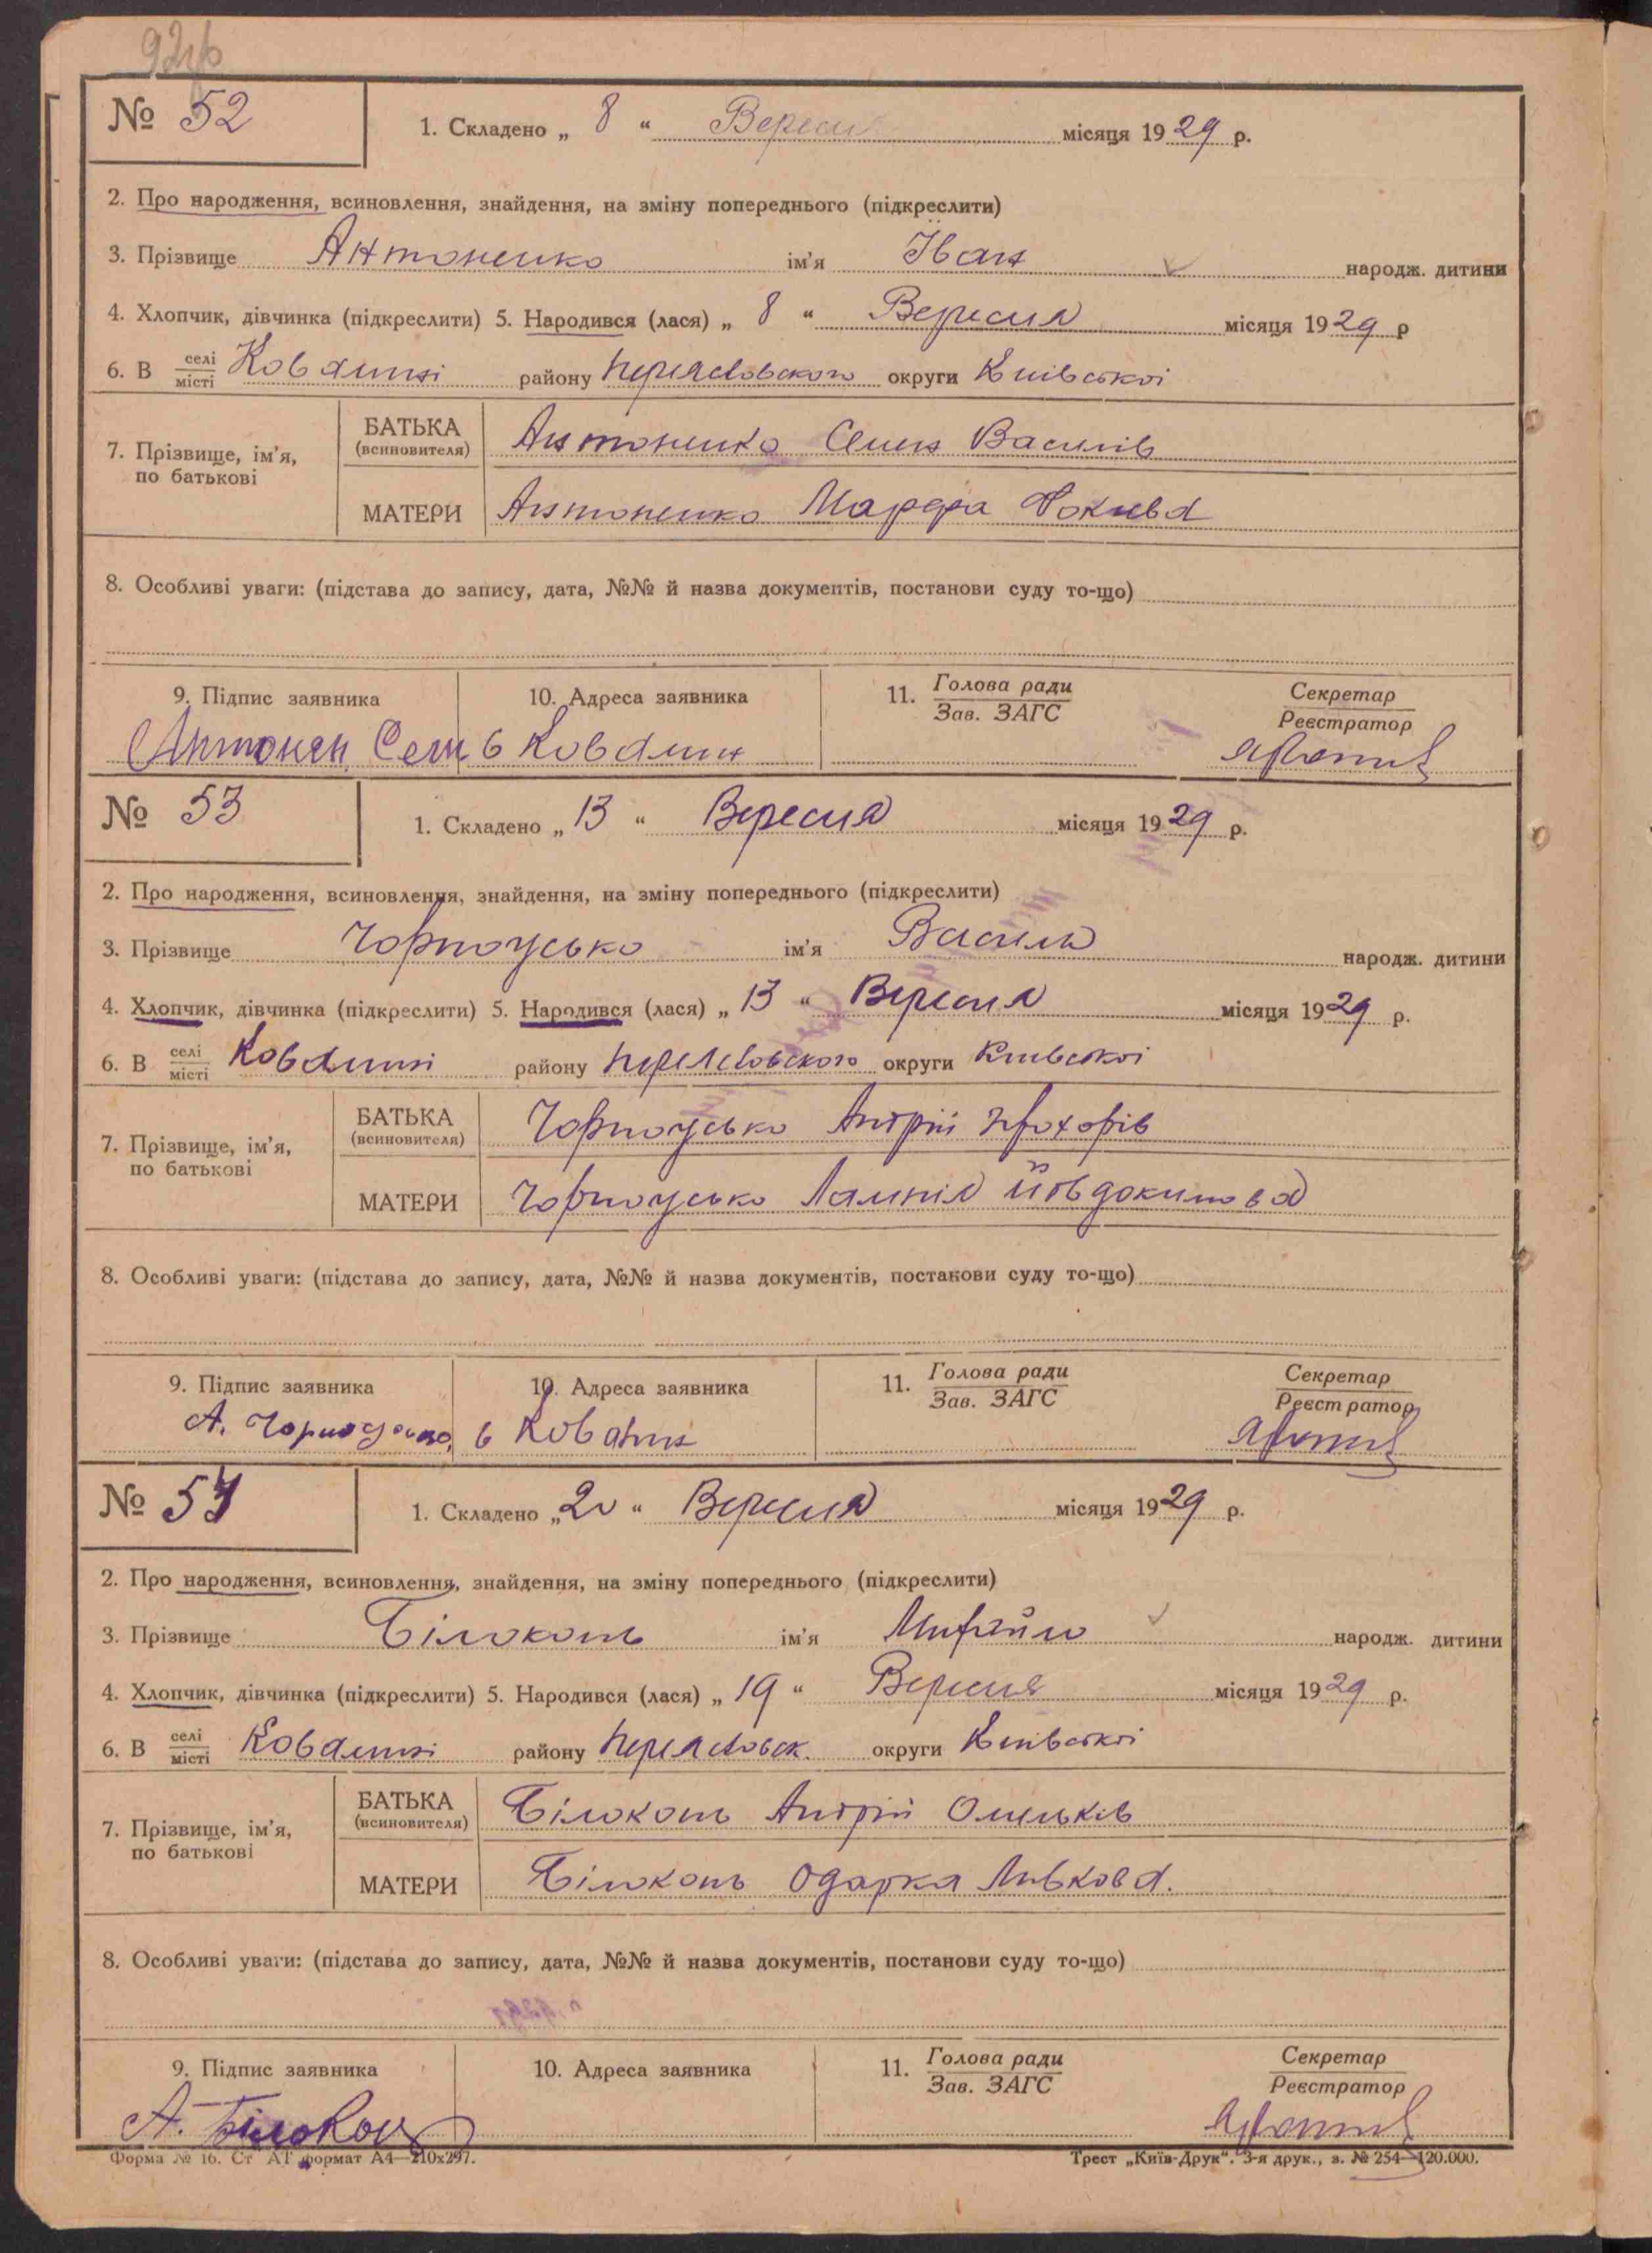 № 52
1. Складено „ 8 “ Вересня місяця 1929 р.
2. Про народження, всиновлення, знайдення, на зміну попереднього (підкреслити)
3. Прізвище Антоненко ім'я Іван народж. дитини
4. Хлопчик, дівчинка (підкреслити) 5. Народився (лася) „ 8 “ Вересня місяця 1929 р
6. В селі місті Ковалині району Переясловского округи Київської
7. Прізвище, ім'я, по батькові
БАТЬКА (всиновителя) Антоненко Семен Василів
МАТЕРИ Антоненко Марфа
8. Особливі уваги: (підстава до запису, дата, №№ й назва документів, постанови суду то-що)
9. Підпис заявника 10. Адреса заявника 11. Голова ради Зав. ЗАГС Секретар Реєстратор
Антонен Сем в Ковалин
№ 53
1. Складено „ 13 “ Вересня місяця 1929 р.
2. Про народження, всиновлення, знайдення, на зміну попереднього (підкреслити)
3. Прізвище Чорноусько ім'я Василь народж. дитини
4. Хлопчик, дівчинка (підкреслити) 5. Народився (лася) „ 13 “ Вересня місяця 1929 р.
6. В селі місті Ковалині району Переясловского округи Київської
7. Прізвище, ім'я, по батькові
БАТЬКА (всиновителя) Чорноусько Андрій Прохорів
МАТЕРИ Чорноусько Лампія Йовдокимова
8. Особливі уваги: (підстава до запису, дата, №№ й назва документів, постанови суду то-що)
9. Підпис заявника 10. Адреса заявника 11. Голова ради Зав. ЗАГС Секретар Реєстратор
А. Чорноусько, в Ковалин
№ 54
1. Складено „ 20 “ Вересня місяця 1929 р.
2. Про народження, всиновлення, знайдення, на зміну попереднього (підкреслити)
3. Прізвище Білоконь ім'я Михайло народж. дитини
4. Хлопчик, дівчинка (підкреслити) 5. Народився (лася) „ 19 “ Вересня місяця 1929 р.
6. В селі місті Ковалині району Переясловск. округи Київської
7. Прізвище, ім'я, по батькові
БАТЬКА (всиновителя) Білоконь Андрій Омельків
МАТЕРИ Білоконь Одарка Левкова.
8. Особливі уваги: (підстава до запису, дата, №№ й назва документів, постанови суду то-що)
9. Підпис заявника 10. Адреса заявника 11. Голова ради Зав. ЗАГС Секретар Реєстратор
А. Білоконь
Форма № 16. Ст АТ формат А4—210х297.
Трест „Київ-Друк“. 3-я друк., з. № 254—120.000.